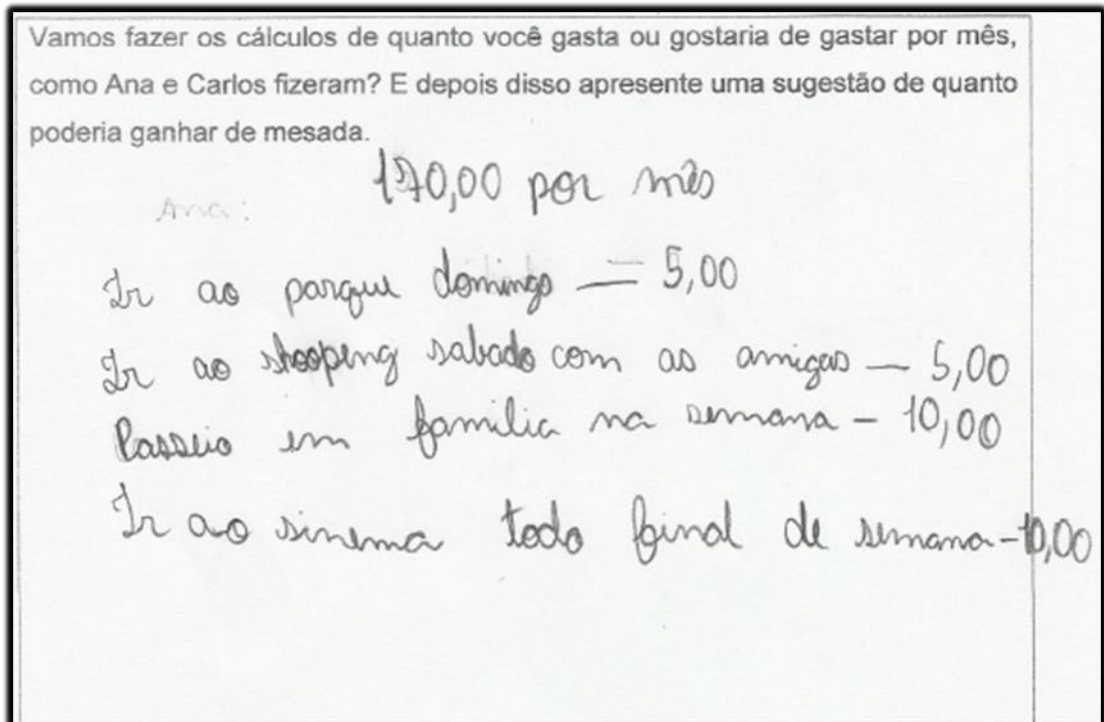 Vamos fazer os cálculos de quanto você gasta ou gostaria de gastar por mês,
como Ana e Carlos fizeram? E depois disso apresente uma sugestão de quanto
poderia ganhar de mesada.
por mês
Ana:
Ir ao parque domingo — 5,00
Ir ao shooping sabado com as amigas — 5,00
Passeio em família na semana - 10,00
Ir ao sinema todo final de semana - 10,00